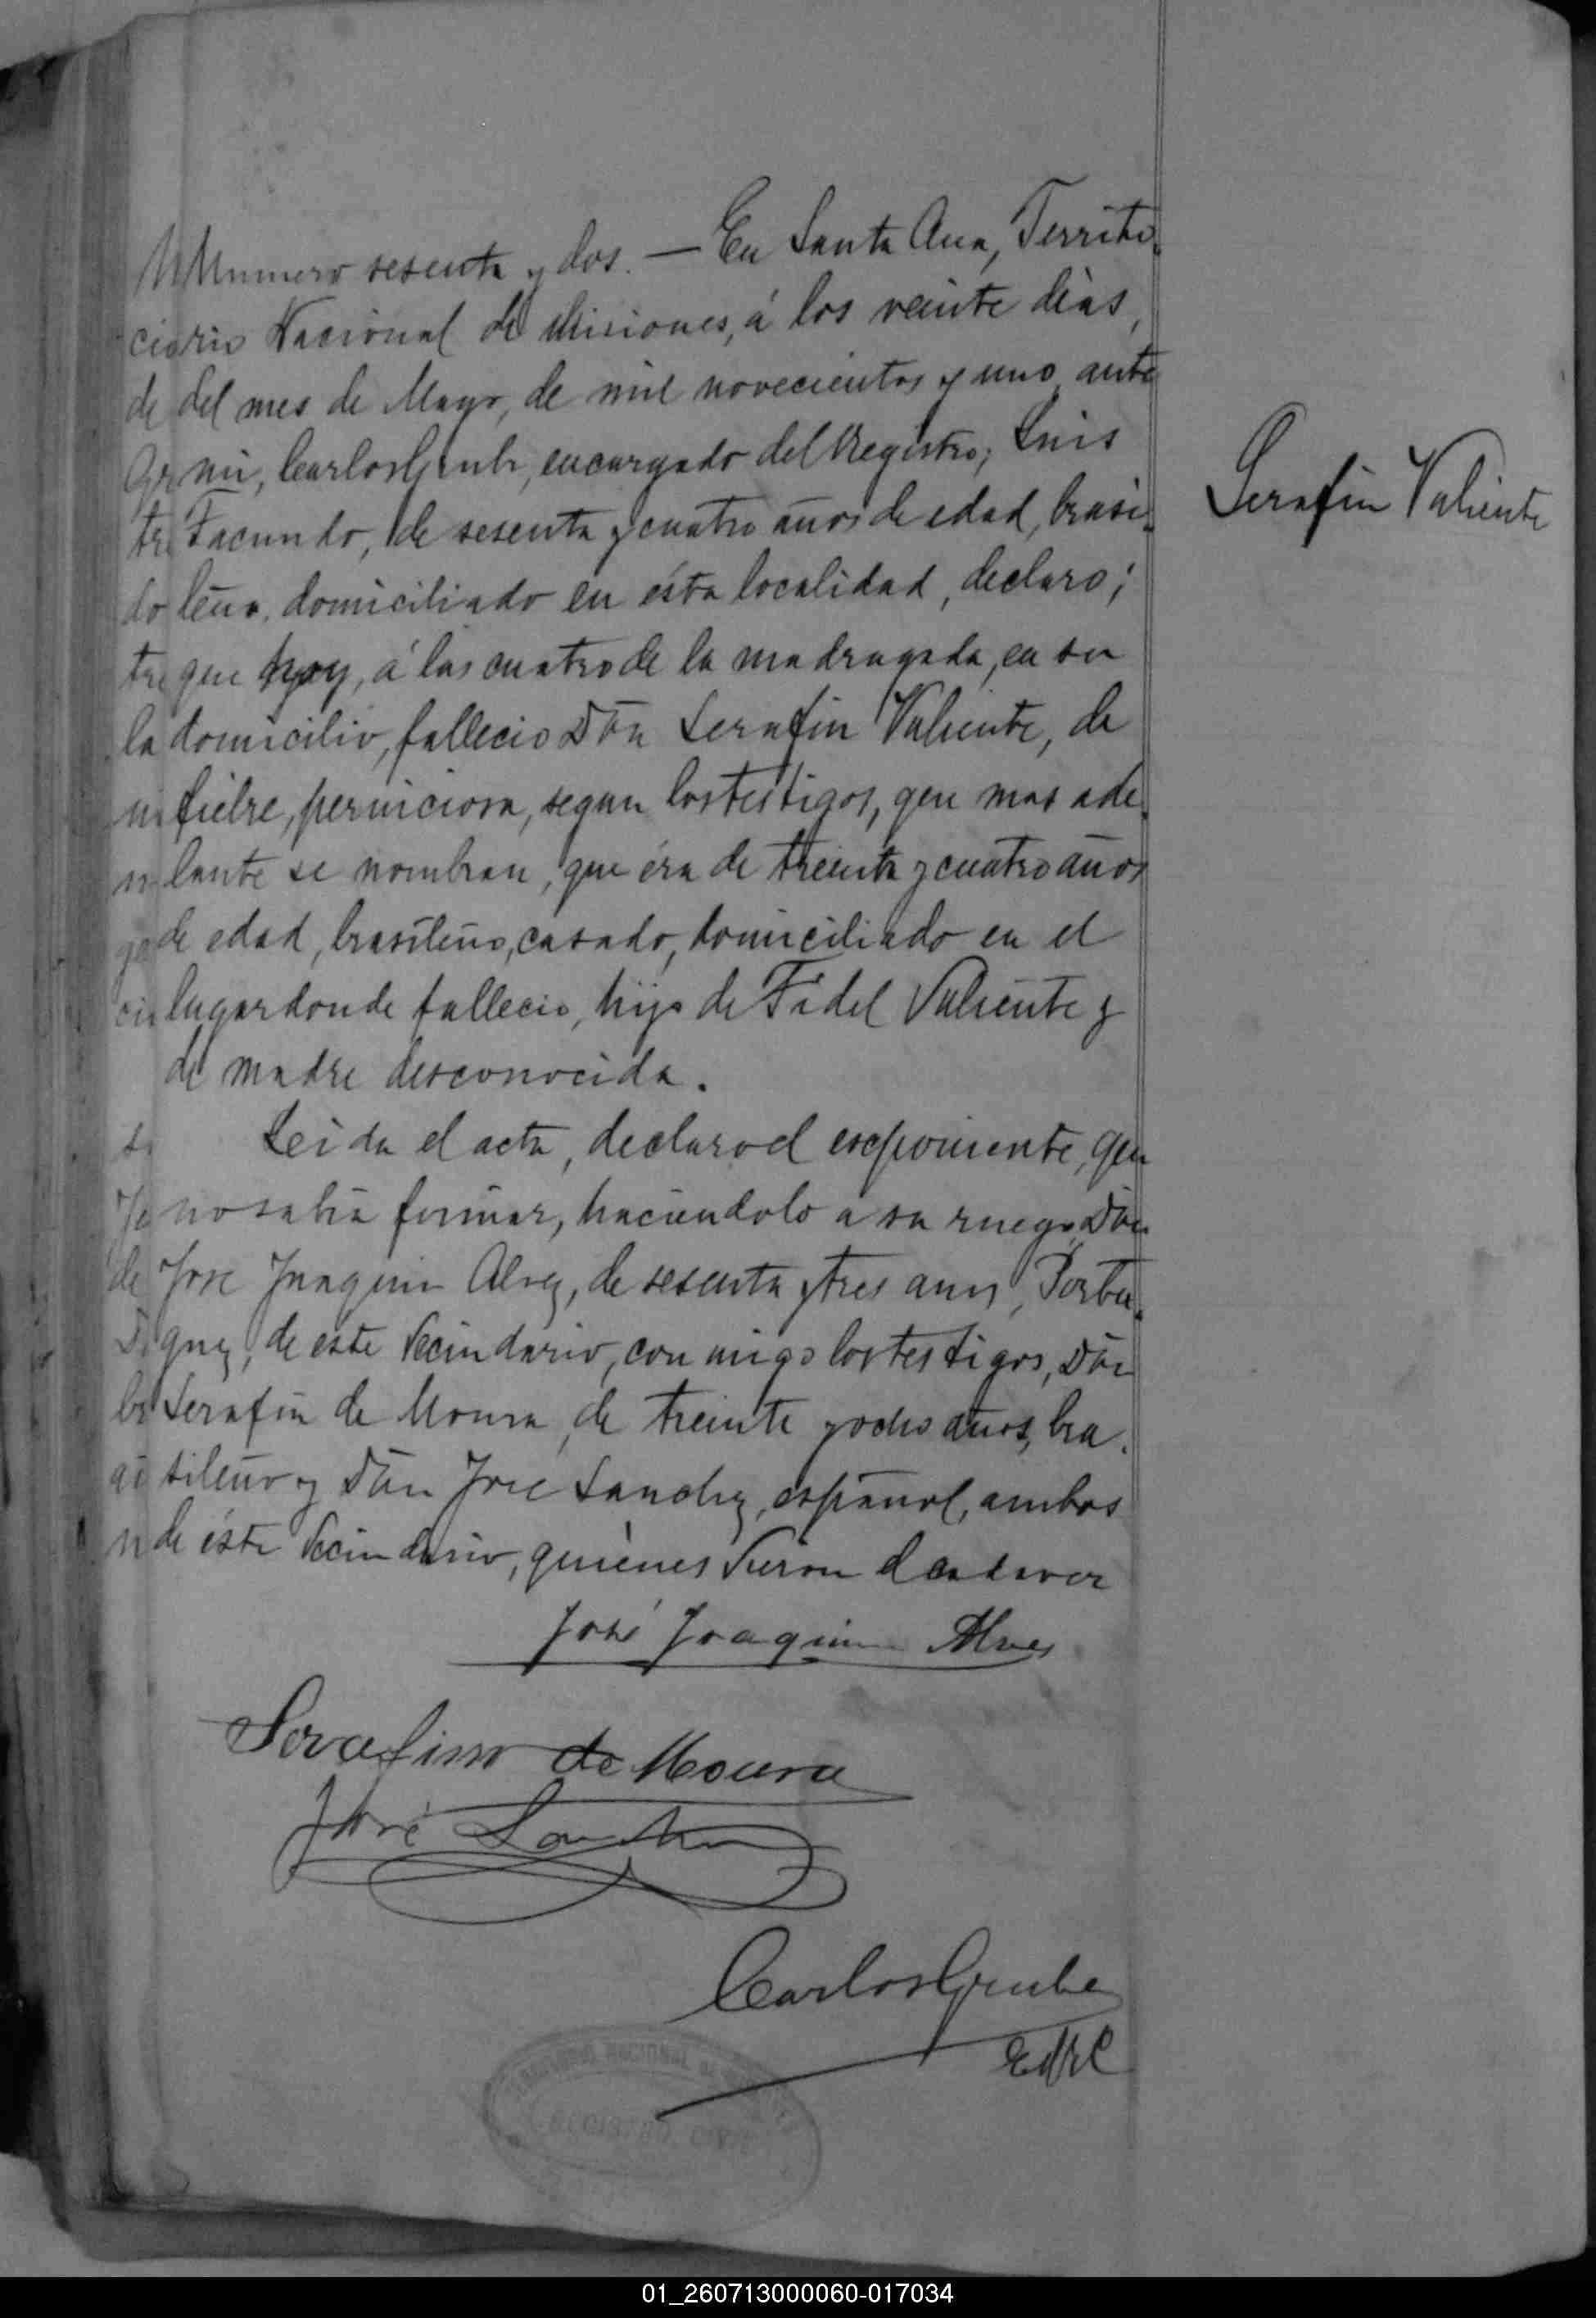 Numero sesenta y dos. — En Santa Ana, Territo
rio Nacional de Misiones, á los veinte dias,
del mes de Mayo, de mil novecientos y uno ante
mi, Carlos Grube, encargado del Registro; Luis
Facundo, de sesenta y cuatro años de edad, brasi-
leño, domiciliado en ésta localidad, declaro;
que hoy, á las cuatro de la madrugada, en su
domicilio, fallecio Dōn Serafin Valiente, de
fiebre, perniciosa, segun los testigos, que mas ade-
lante se nombran, que éra de treinta y cuatro años
de edad, brasileño, casado, domiciliado en el
lugar donde fallecio, hijo de Fidel Valiente y
de madre desconocida.
Leida el acta, declaro el esxponiente, que
no sabia firmar, haciendolo a su ruego Dōn
Jose Juaquin Alvez, de sesenta y tres anos, Portu-
guez, de este Vecindario, con migo los testigos, Dōn
Serafin de Moura, de treinte y ocho años, bra-
sileño y Dōn Jose Sanchez, español, ambos
de éste Vecindario, quiénes Vieron el cadaver
José Joaquim Alves
Serafim de Moura
José Sanchez
Carlos Grube
EdRC
Serafin Valiente
TERRITORIO NACIONAL DE MISIONES
REGISTRO CIVIL
01_260713000060-017034